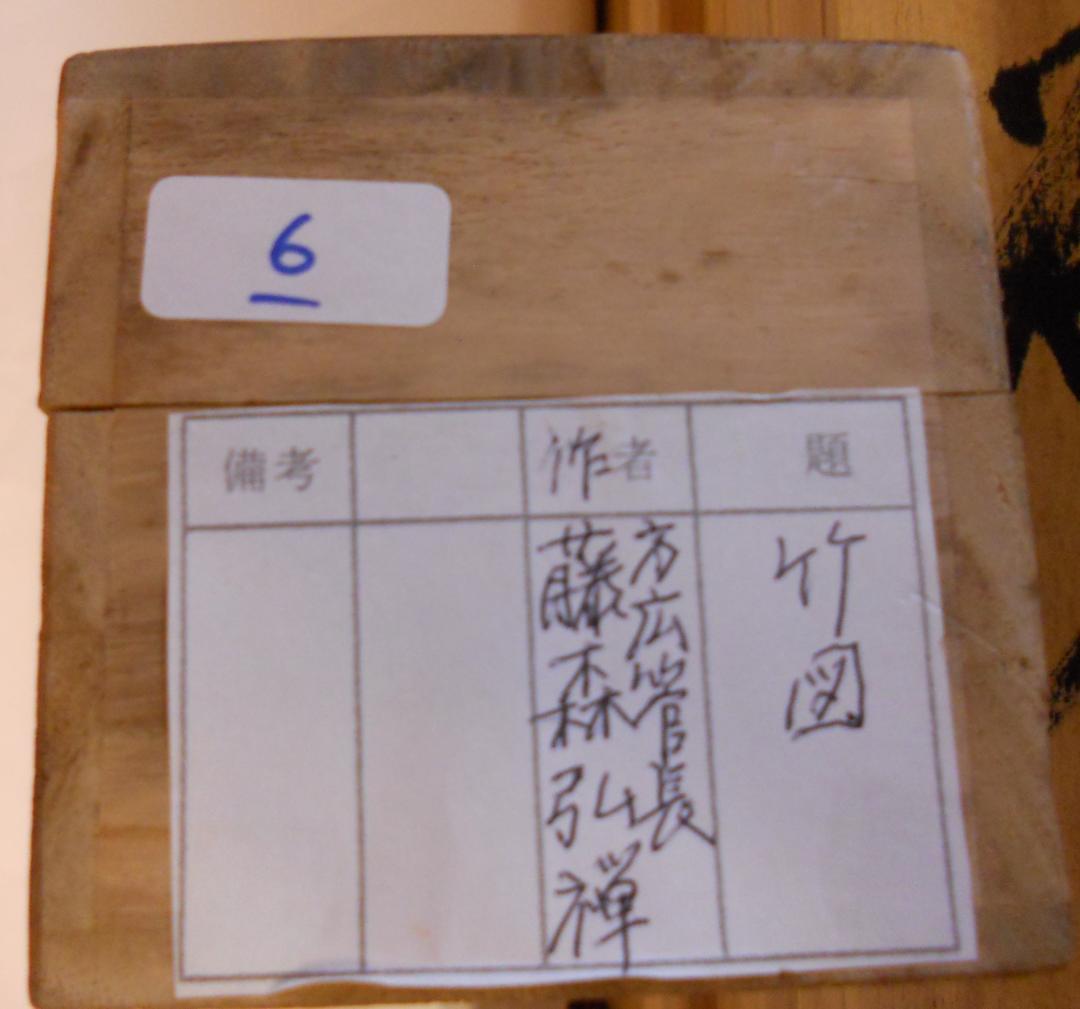 6
題
竹図
作者
方広管長
藤森弘禅
備考